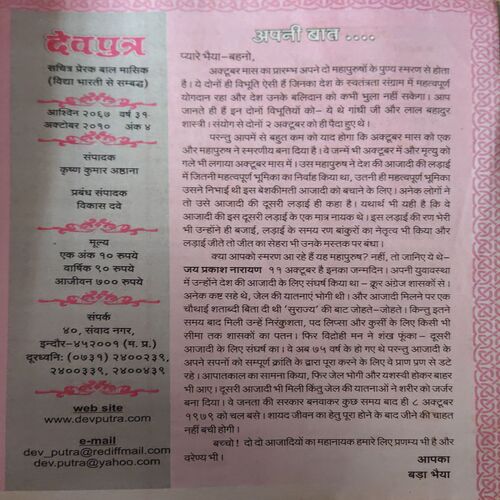 देवपुत्र
सचित्र प्रेरक बाल मासिक
(विद्या भारती से सम्बद्ध)
आश्विन २०६७ वर्ष ३१
अक्टोबर २०१० अंक ४
संपादक
कृष्ण कुमार अष्ठाना
प्रबंध संपादक
विकास दवे
मूल्य
एक अंक १० रुपये
वार्षिक ९० रुपये
आजीवन ७०० रुपये
संपर्क
४०, संवाद नगर,
इन्दौर-४५२००१ (म. प्र.)
दूरध्वनि: (०७३१) २४००२३९,
२४००३३९, २४००४३९
web site
www.devputra.com
e-mail
dev_putra@rediffmail.com
dev.putra@yahoo.com
अपनी बात ....
प्यारे भैया-बहनो,
अक्टूबर मास का प्रारम्भ अपने दो महापुरुषों के पुण्य स्मरण से होता
है। ये दोनों ही विभूति ऐसी हैं जिनका देश के स्वतंत्रता संग्राम में महत्वपूर्ण
योगदान रहा और देश उनके बलिदान को कभी भुला नहीं सकेगा। आप
जानते ही हैं इन दोनों विभूतियों को- ये थे गांधी जी और लाल बहादुर
शास्त्री। संयोग से दोनों २ अक्टूबर को ही पैदा हुए थे।
परन्तु आपमें से बहुत कम को याद होगा कि अक्टूबर मास को एक
और महापुरुष ने स्मरणीय बना दिया है। वे जन्मे भी अक्टूबर में और मृत्यु को
गले भी लगाया अक्टूबर मास में। उस महापुरुष ने देश की आजादी की लड़ाई
में जितनी महत्वपूर्ण भूमिका का निर्वाह किया था, उतनी ही महत्वपूर्ण भूमिका
उसने निभाई थी इस बेशकीमती आजादी को बचाने के लिए। अनेक लोगों ने
तो उसे आजादी की दूसरी लड़ाई ही कहा है। यथार्थ भी यही है कि वे
आजादी की इस दूसरी लड़ाई के एक मात्र नायक थे। इस लड़ाई की रण भेरी
भी उन्होंने ही बजाई, लड़ाई के समय रण बांकुरों का नेतृत्व भी किया और
लड़ाई जीते तो जीत का सेहरा भी उनके मस्तक पर बंधा।
क्या आपको स्मरण आ रहे हैं यह महापुरुष? नहीं, तो जानिए ये थे-
जय प्रकाश नारायण ११ अक्टूबर है इनका जन्मदिन। अपनी युवावस्था
में उन्होंने देश की आजादी के लिए संघर्ष किया था - क्रूर अंग्रेज शासकों से।
अनेक कष्ट सहे थे, जेल की यातनाएं भोगी थी। और आजादी मिलने पर एक
चौथाई शताब्दी बिता दी थी 'सुराज्य' की बाट जोहते-जोहते। किन्तु इतने
समय बाद मिली उन्हें निरंकुशता, पद लिप्सा और कुर्सी के लिए किसी भी
सीमा तक शासकों का पतन। फिर विद्रोही मन ने शंख फूंका - दूसरी
आजादी के लिए संघर्ष का। वे अब ७५ वर्ष के हो गए थे परन्तु आजादी के
अपने सपनों को सम्पूर्ण क्रांति के द्वारा पूरा करने के लिए वे प्राण प्रण से डटे
रहे। आपातकाल का सामना किया, फिर जेल भोगी और यशस्वी होकर बाहर
भी आए। दूसरी आजादी भी मिली किंतु जेल की यातनाओं ने शरीर को जर्जर
बना दिया। वे जनता की सरकार बनवाकर कुछ समय बाद ही ८ अक्टूबर
१९७९ को चल बसे। शायद जीवन का हेतु पूरा होने के बाद जीने की चाहत
नहीं बची होगी।
बच्चो! दो दो आजादियों का महानायक हमारे लिए प्रणम्य भी है और
वरेण्य भी।
आपका
बड़ा भैया